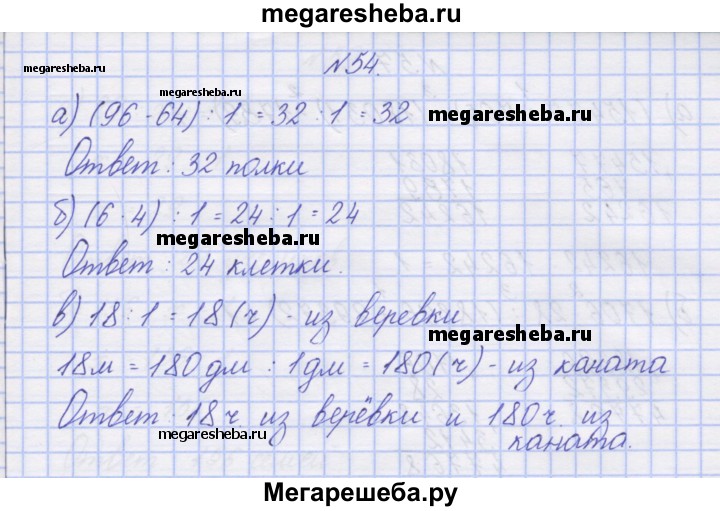 megaresheba.ru
№54.
megaresheba.ru
megaresheba.ru
а) (96 - 64) : 1 = 32 : 1 = 32
megaresheba.ru
Ответ : 32 полки
б) (6 · 4) : 1 = 24 : 1 = 24
megaresheba.ru
Ответ : 24 клетки.
в) 18 : 1 = 18 (ч) - из веревки
megaresheba.ru
18м = 180 дм : 1 дм = 180 (ч) - из каната
Ответ : 18 ч. из верёвки и 180 ч. из
megaresheba.ru
каната.
Мегарешеба.ру